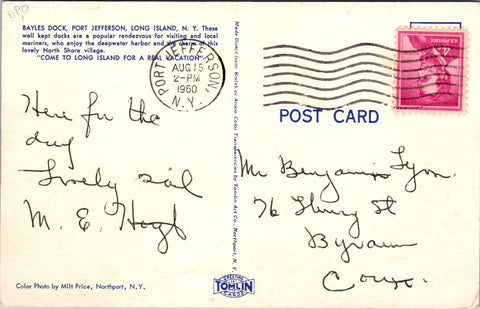 BAYLES DOCK, PORT JEFFERSON, LONG ISLAND, N. Y. These
well kept docks are a popular rendezvous for visiting and local
mariners, who enjoy the deepwater harbor and the charm of this
lovely North Shore village.
"COME TO LONG ISLAND FOR A REAL VACATION"
PORT JEFFERSON,
AUG 15
2-PM
1960
N.Y.
POST CARD
Here for the
day
Lovely sail
M. E. Hoyt
Made Direct from Kodak or Ansco Color Transparencies by Tomlin Art Co., Northport, N. Y.
Mr Benjamin Lyon
76 Henry St
Byram
Conn.
Color Photo by Milt Price, Northport, N.Y.
GREETING
TOMLIN
CARDS